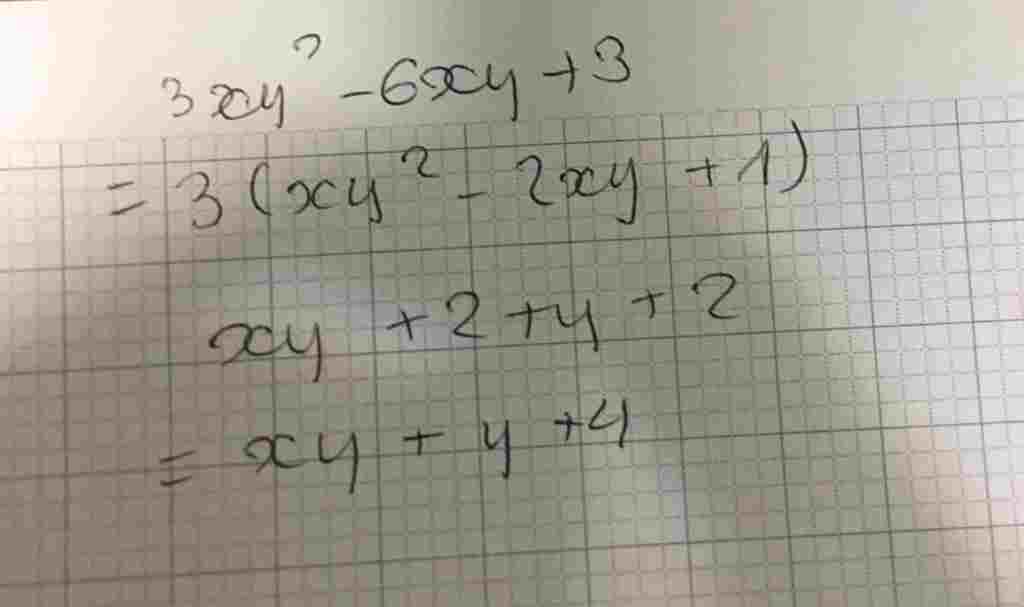 3xy² - 6xy + 3
= 3(xy² - 2xy + 1)
xy + 2 + y + 2
= xy + y + 4